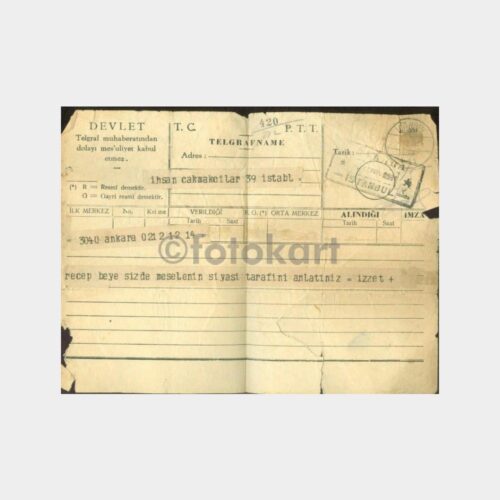 420
DEVLET
Telgraf muhaberatından
dolayı mes'uliyet kabul
etmez.
T. C.
P. T. T.
TELGRAFNAME
Adres :
Tarih:
ISTANBUL
ihsan cakmakcilar 39 istabl -
(*) R = Resmi demektir.
O = Gayri resmi demektir.
İLK MERKEZ No. Kelime VERİLDİĞİ Tarih Saat R. O. (*) ORTA MERKEZ ALINDIĞI Tarih Saat İMZA
- 3040 ankara 0212 12 14 -
©fotokart
recep beye sizde meselenin siyasi tarafini anlatiniz = izzet +